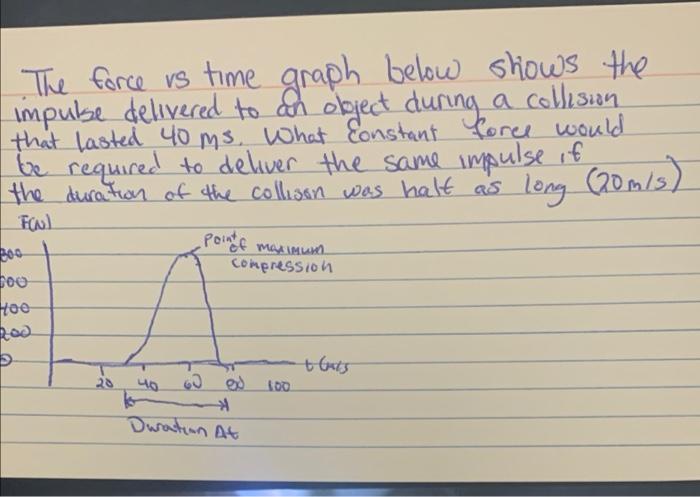 The force vs time graph below shows the
impulse delivered to an object during a collision
that lasted 40 ms. What constant force would
be required to deliver the same impulse if
the duration of the collison was half as long (20m/s)
F(N)
Point of maximum
compression
800
600
400
200
0
t (m/s
20 40 60 80 100
Duration Δt